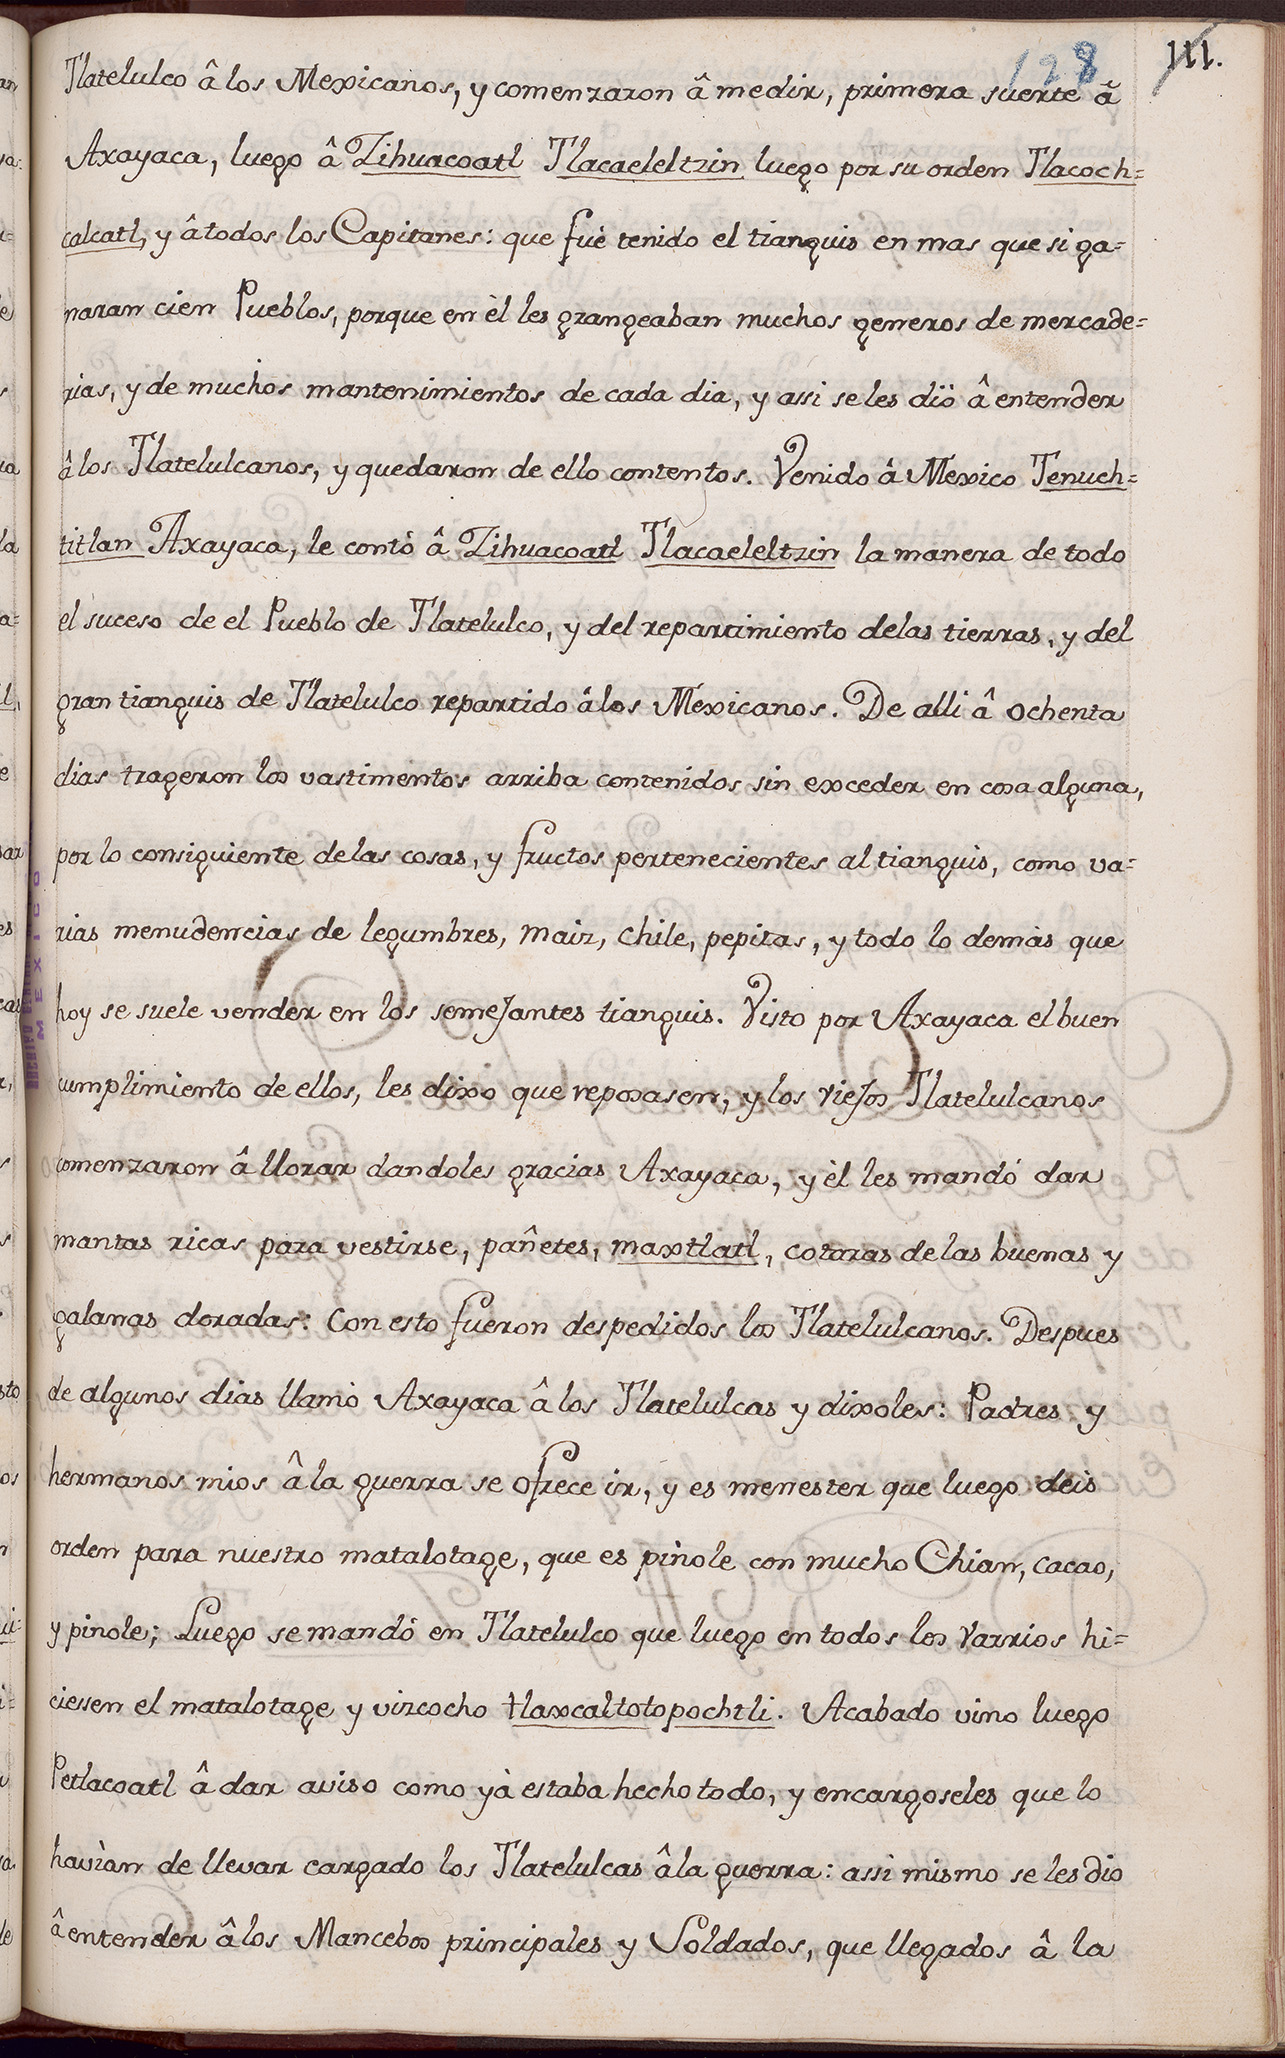 128
111.
Tlatelulco â los Mexicanos, y comenzaron â medir, primera suerte â
Axayaca, luego â Zihuacoatl Tlacaeleltzin luego por su orden Tlacoch=
calcatl, y â todos los Capitanes: que fuè tenido el tianguis en mas que si ga=
naran cien Pueblos, porque en èl les grangeaban muchos generos de mercade=
rias, y de muchos mantenimientos de cada dia, y assi se les diò â entender
â los Tlatelulcanos, y quedaron de ello contentos. Venido â Mexico Tenuch=
titlan Axayaca, le contò â Zihuacoatl Tlacaeleltzin la manera de todo
el suceso de el Pueblo de Tlatelulco, y del repartimiento delas tierras, y del
gran tianguis de Tlatelulco repartido â los Mexicanos. De alli â ochenta
dias trageron los vastimentos arriba contenidos sin exceder en cosa alguna,
por lo consiguiente delas cosas, y fructos pertenecientes al tianguis, como va=
rias menudencias de legumbres, maiz, chile, pepitas, y todo lo demàs que
hoy se suele vender en los semejantes tianguis. Visto por Axayaca el buen
cumplimiento de ellos, les dixo que reposasen, y los viejos Tlatelulcanos
comenzaron â llorar dandoles gracias Axayaca, y èl les mandó dar
mantas ricas para vestirse, pañetes, maxtlatl, cotaras de las buenas y
galanas doradas: Con esto fueron despedidos los Tlatelulcanos. Despues
de algunos dias llamò Axayaca â los Tlatelulcas y dixoles: Padres y
hermanos mios â la guerra se ofrece ir, y es menester que luego deis
orden para nuestro matalotage, que es pinole con mucho Chian, cacao,
y pinole; Luego se mandó en Tlatelulco que luego en todos los Varrios hi=
ciesen el matalotage y vizcocho tlaxcaltotopochtli. Acabado vino luego
Petlacoatl â dar aviso como yà estaba hecho todo, y encargoseles que lo
havìan de llevar cargado los Tlatelulcas â la guerra: assi mismo se les dio
â entender â los Mancebos principales y Soldados, que llegados â la